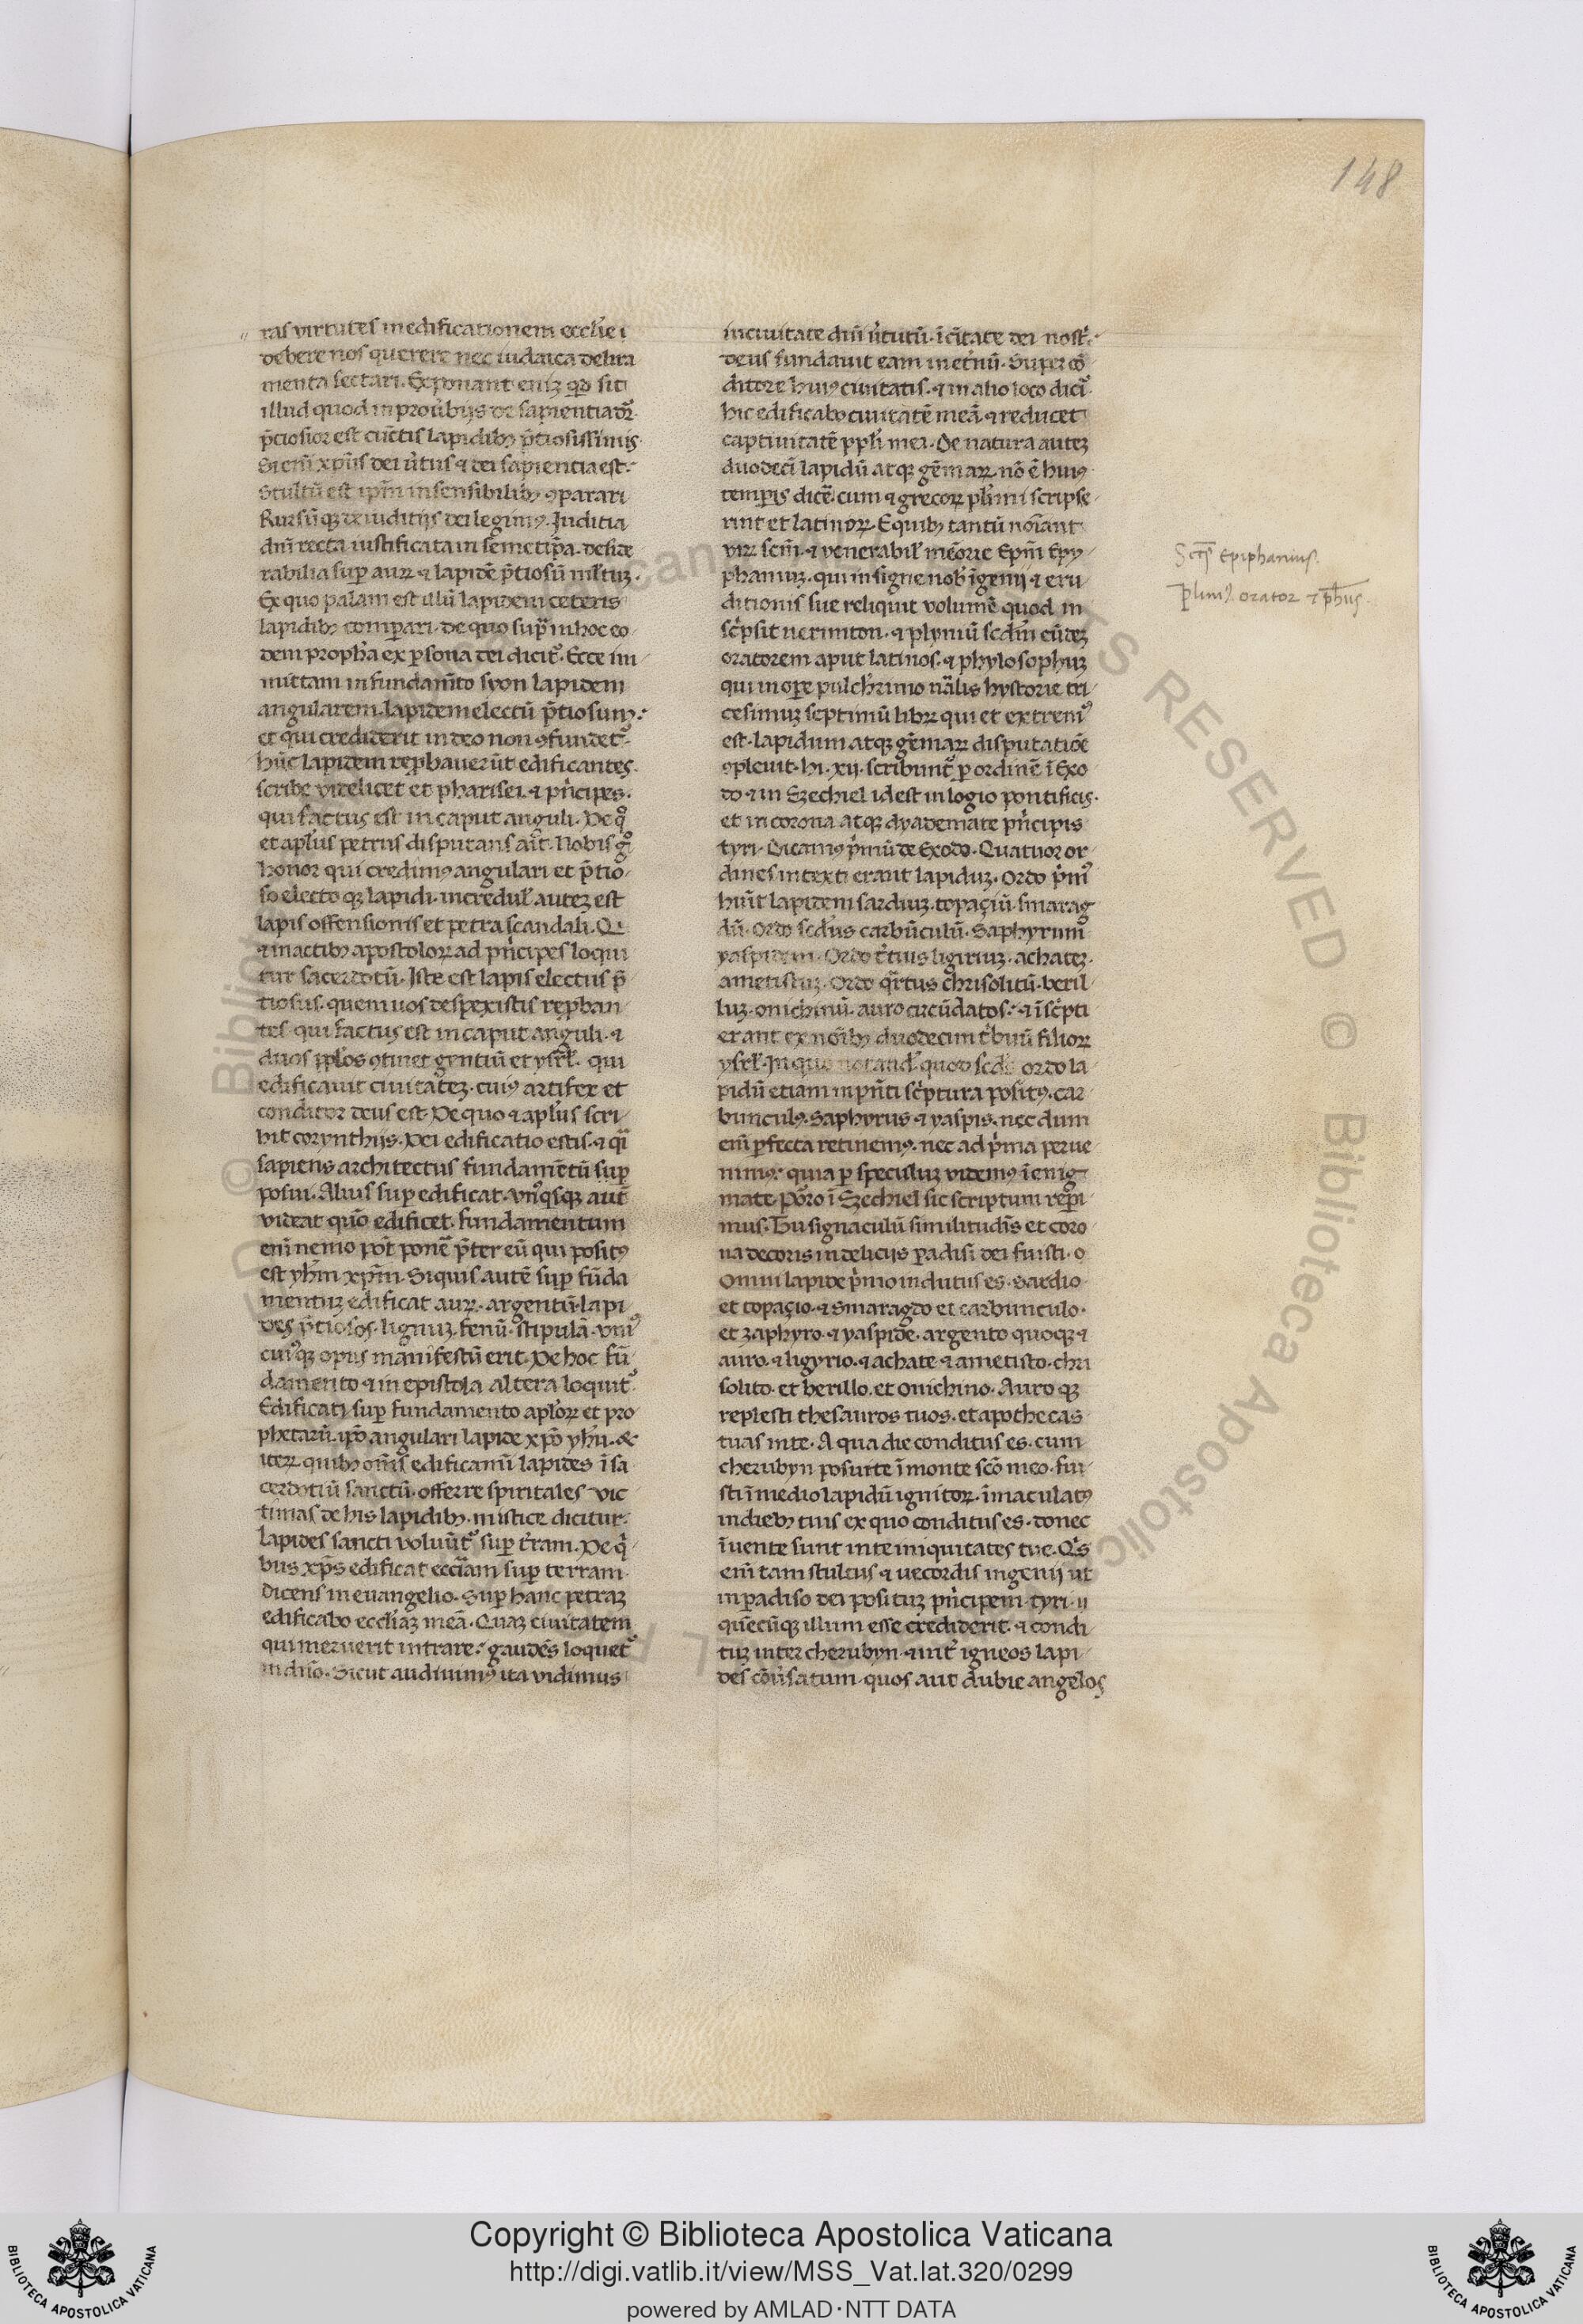 148
ras virtutes in edificationem eccl'ie i
debere nos querere nec iudaica delira
menta sectari. Exponant eniȝ qđ sit
illud quod in prou̾bijs de sapientia dr̄.
p̄ciosior est cūctis lapidibꝫ p̄tiosissimis.
Si eni̅ xp̄us dei u̾tus ⁊ dei sapientia est:
Stultū est ip̄m insensibilibꝫ ꝯparari
Rursūqꝫ de iuditijs dei legimꝰ. Juditia
dn̄i recta iustificata in semetip̄a. deside
rabilia sup̱ auꝝ ⁊ lapidē p̄tiosū ml'tuꝫ.
Ex quo palam est illū lapidem ceteris
lapidibꝫ comparari. de quo sup̄ in hoc eo
dem propha ex ꝑsona dei dicit᷑. Ecce im
mittam in fundam̄to syon lapidem
angularem. lapidem electū p̄tiosum:
et qui crediderit in deo non ꝯfundet᷑.
hūc lapidem reꝓbauerūt edificantes.
scribe videlicet et pharisei. ⁊ pn̾cipes.
qui factus est in caput anguli. De qͦ
et apl'us petrus disputans ait. Nobis gͦ
honor qui credimꝰ angulari et p̄tio
so electo qꝫ lapidi. incredul' auteꝫ est
lapis offensionis et petra scandali. Qͥ
⁊ in actibꝫ apostoloꝝ ad pn̾cipes loqui
tur sacerdotū. Iste est lapis electus p̄
tiosus. quem uos despexistis reꝓban
tes. qui factus est in caput anguli. ⁊
duos ppl'os ꝯtinet gentiū et ysrl'. qui
edificauit ciuitateꝫ. cuiꝰ artifex et
conditor deus est. De quo ⁊ apl'us scri
bit corynthijs. Dei edificatio estis. ⁊ qͣi
sapiens architectus fundamētū sup̱
posui. Alius sup̱ edificat. vnꝰqͥsqꝫ aut̄
videat quō edificet. fundamentum
eni̅ nemo pōt pone᷑ p̄ter eū qui positꝰ
est yhm̄ xpm̄. Si quis autē sup̱ fūda
mentuꝫ edificat auꝝ. argentū. lapi
des p̄tiosos. lignuꝫ. fenū. stipulā. vniꝰ
cuiꝰqꝫ opus manifestū erit. De hoc fū
damento ⁊ in epistola altera loquit᷑.
Edificati sup̱ fundamento apl'oꝝ et pro
phetarū. ip̄o angulari lapide xp̄o yhu. &
iteꝝ quibꝫ om̄s edificamī lapides ī sa
cerdotiū sanctū. offerre spiritales vic
timas de his lapidibꝫ. mistice dicitur.
Lapides sancti voluūt᷑ sup̱ t̾ram. De qͥ
bus xp̄s edificat eccl'iam sup̱ terram
dicens in euangelio. Sup̱ hanc petraꝫ
edificabo eccl'iaꝫ meā. Quaꝫ ciuitatem
qui meruerit intrare: gaudēs loquet᷑
in dn̄o. Sicut audiuimꝰ ita vidimus
in ciuitate dn̄i u̾tutū. ī cī̄tate dei nost̾.
deus fundauit eam in et̾nū. Super cō
ditore huiꝰ ciuitatis. ⁊ in alio loco dicit᷑.
hic edificabo ciuitatē meā. ⁊ reducet
captiuitatē ppl'i mei. De natura auteꝫ
duodeci̅ lapidū atqꝫ gēmaꝝ. nō ē huiꝰ
temp̱is dice᷑. cum ⁊ grecoꝝ pl'imi scripse
rint et latinoꝝ. E quibꝫ tantū noīant
viꝝ scm̄. ⁊ venerabil' meōrie Epm̄ Epy
phaniuꝫ. qui insigne nob' ī̄genij ⁊ eru
ditionis sue reliquit volumē quod in
sc̾psit uerimton. ⁊ plyniū scd̄m eūdeꝫ
oratorem aput latinos. ⁊ phylosophuꝫ
qui in oꝑe pulch̾rimo nāl̄is hystorie tri
cesimuꝫ septimū libꝝ qui et extremꝰ
est. lapidum atqꝫ gēmaꝝ disputatiōe
ꝯpleuit. hi. xij. scribunt᷑ ꝑ ordinē ī Exo
do ⁊ in Ezechiel id est in logio pontificis.
et in corona atqꝫ dyademate pn̾cipis
tyri. Dicamꝰ p̾mū de Exodo. Quatuor or
dines intexti erant lapiduꝫ. Ordo p̾mꝰ
hūit lapidem sardiuꝫ. topaçiū. smarag
dū. Ordo scd̄us carbūculū. Saphyrum
yaspidem. Ordo t̾tius ligiriuꝫ. achateꝫ.
ametistuꝫ. Ordo qͣrtus chrisolitū. beril
luꝫ. onichinū. auro circūdatos: ⁊ ī sc̾pti
erant ex noīb̄ꝫ duodecim t̾buū filioꝝ
ysrl'. In quo notand' quod scd̄s ordo la
pidū etiam in pn̄ti sc̾ptura positꝰ. car
bunculꝰ. Saphyrus ⁊ yaspis. nec dum
eni̅ ꝑfecta retinemꝰ. nec ad p̾ma perue
nimꝰ: quia ꝑ speculuꝫ videmꝰ ī enig
mate. Poͬro ī Ezechiel sic scriptum rep̱i
mus. Tu signaculū similitudīs et coro
na decoris in delicijs paradisi dei fuisti. o
Omni lapide p̾mo indutus es. Sardio
et topaçio. ⁊ Smaragdo et carbunculo.
et zaphyro. ⁊ yaspide. argento quoqꝫ ⁊
auro. ⁊ ligyrio. ⁊ achate ⁊ ametisto. chri
solito. et berillo. et onichino. Auro qꝫ
replesti thesauros tuos. et apothecas
tuas in te. A qua die conditus es. cum
cherubyn posui te ī monte scō meo. fui
sti ī medio lapidū ignitoꝝ. īmaculatꝰ
in diebꝫ tuis ex quo conditus es. donec
ī̄uente sunt in te iniquitates tue. Qͥs
eni̅ tam stultus ⁊ uecordis ingenij ut
in paradiso dei posituꝫ pn̾cipem tyri
quēcūqꝫ illum esse crediderit. ⁊ condi
tuꝫ inter cherubyn. ⁊ int̾ igneos lapi
des cōu̾satum. quos aut dubie angelos
Sctꝰ Epiphanius.
Pliniꝰ orator ⁊ ph̄us.
Copyright © Biblioteca Apostolica Vaticana
http://digi.vatlib.it/view/MSS_Vat.lat.320/0299
powered by AMLAD·NTT DATA
BIBLIOTECA APOSTOLICA VATICANA
BIBLIOTECA APOSTOLICA VATICANA